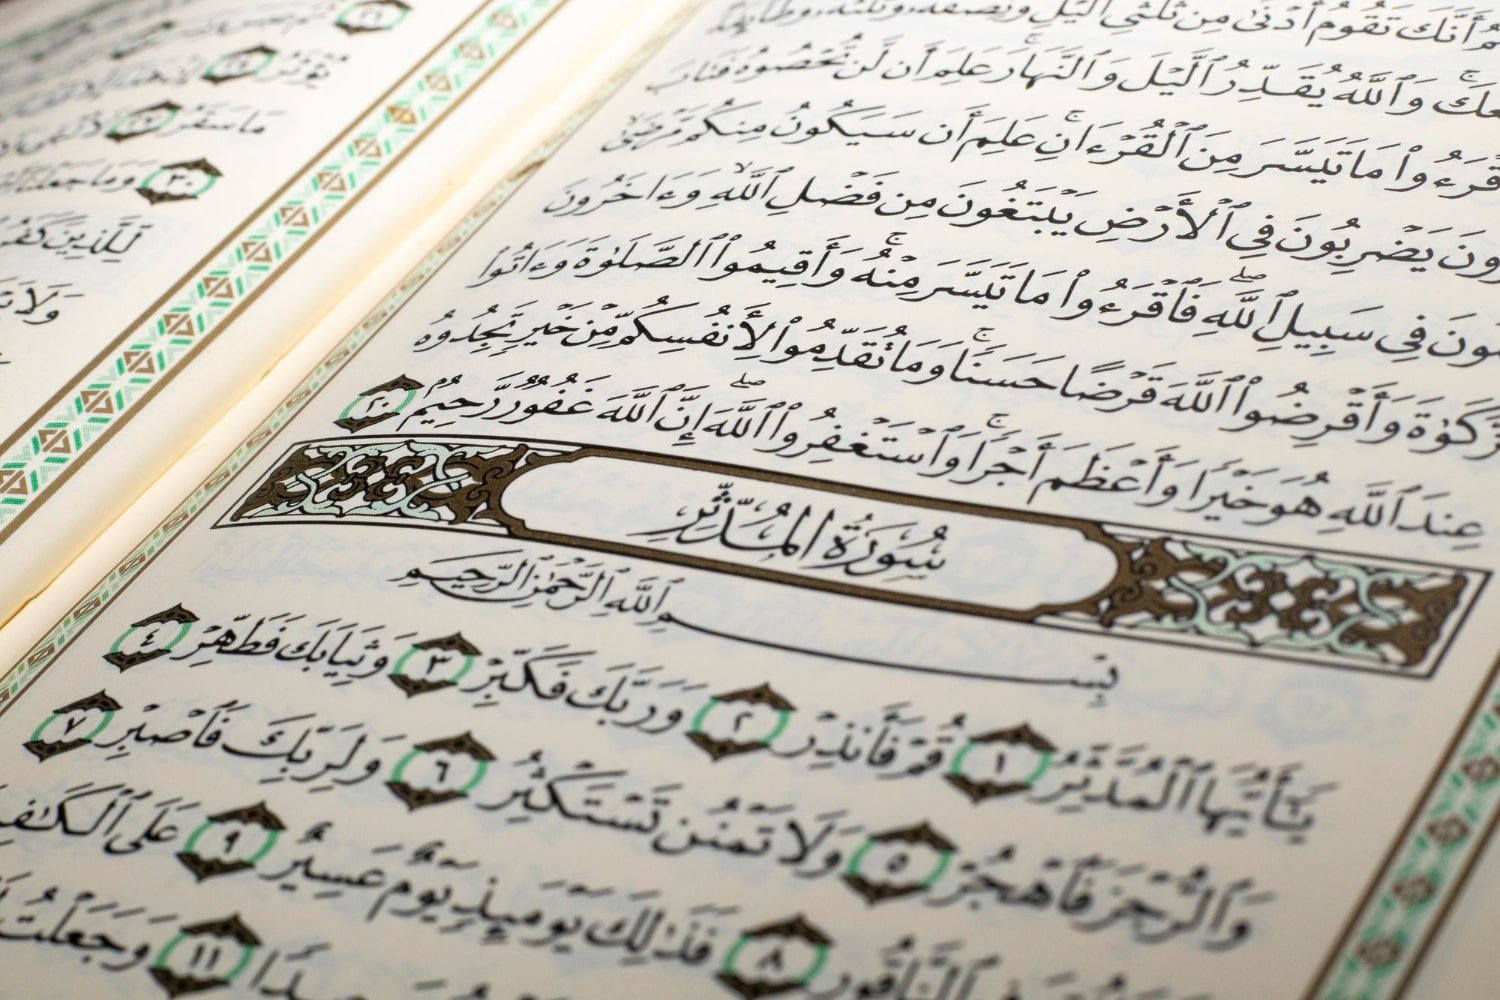 أَنَّكَ تَقُومُ أَدْنَىٰ مِن ثُلُثَىِ ٱلَّيْلِ وَنِصْفَهُۥ وَثُلُثَهُۥ وَطَآئِفَةٌ
مَعَكَ ۚ وَٱللَّهُ يُقَدِّرُ ٱلَّيْلَ وَٱلنَّهَارَ ۚ عَلِمَ أَن لَّن تُحْصُوهُ فَتَابَ
مَا تَيَسَّرَ مِنَ ٱلْقُرْءَانِ ۚ عَلِمَ أَن سَيَكُونُ مِنكُم مَّرْضَىٰ ۙ
يَضْرِبُونَ فِى ٱلْأَرْضِ يَبْتَغُونَ مِن فَضْلِ ٱللَّهِ ۙ وَءَاخَرُونَ
فِى سَبِيلِ ٱللَّهِ ۖ فَٱقْرَءُوا۟ مَا تَيَسَّرَ مِنْهُ ۚ وَأَقِيمُوا۟ ٱلصَّلَوٰةَ وَءَاتُوا۟
ٱلزَّكَوٰةَ وَأَقْرِضُوا۟ ٱللَّهَ قَرْضًا حَسَنًا ۚ وَمَا تُقَدِّمُوا۟ لِأَنفُسِكُم مِّنْ خَيْرٍ تَجِدُوهُ
عِندَ ٱللَّهِ هُوَ خَيْرًا وَأَعْظَمَ أَجْرًا ۚ وَٱسْتَغْفِرُوا۟ ٱللَّهَ ۖ إِنَّ ٱللَّهَ غَفُورٌ رَّحِيمٌۢ ٢٠
سُورَةُ المُدَّثِّرِ
بِسْمِ ٱللَّهِ ٱلرَّحْمَٰنِ ٱلرَّحِيمِ
يَٰٓأَيُّهَا ٱلْمُدَّثِّرُ ١ قُمْ فَأَنذِرْ ٢ وَرَبَّكَ فَكَبِّرْ ٣ وَثِيَابَكَ فَطَهِّرْ ٤
وَٱلرُّجْزَ فَٱهْجُرْ ٥ وَلَا تَمْنُن تَسْتَكْثِرُ ٦ وَلِرَبِّكَ فَٱصْبِرْ ٧
ٱلنَّاقُورِ ٨ فَذَٰلِكَ يَوْمَئِذٍ يَوْمٌ عَسِيرٌ ٩ عَلَى ٱلْكَٰفِ
١١ وَجَعَلْتُ
يُؤْثَرُ
مَا سَقَرُ
وَمَا جَعَلْنَا ٣٠
لِلَّذِينَ كَفَرُ
وَلَا